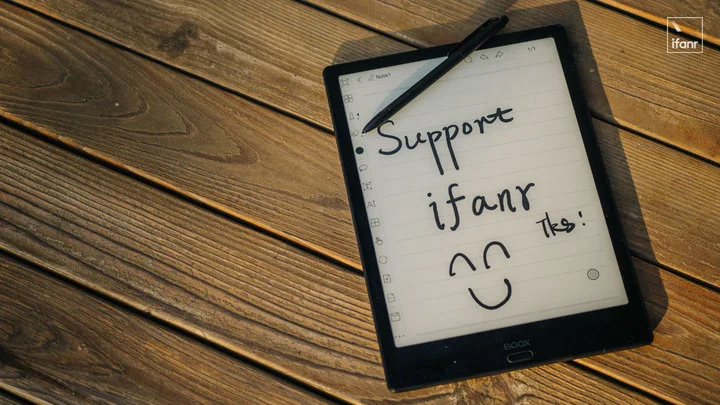 ifanr
Note1
1/1
Support
ifanr
Tks!
BOOX